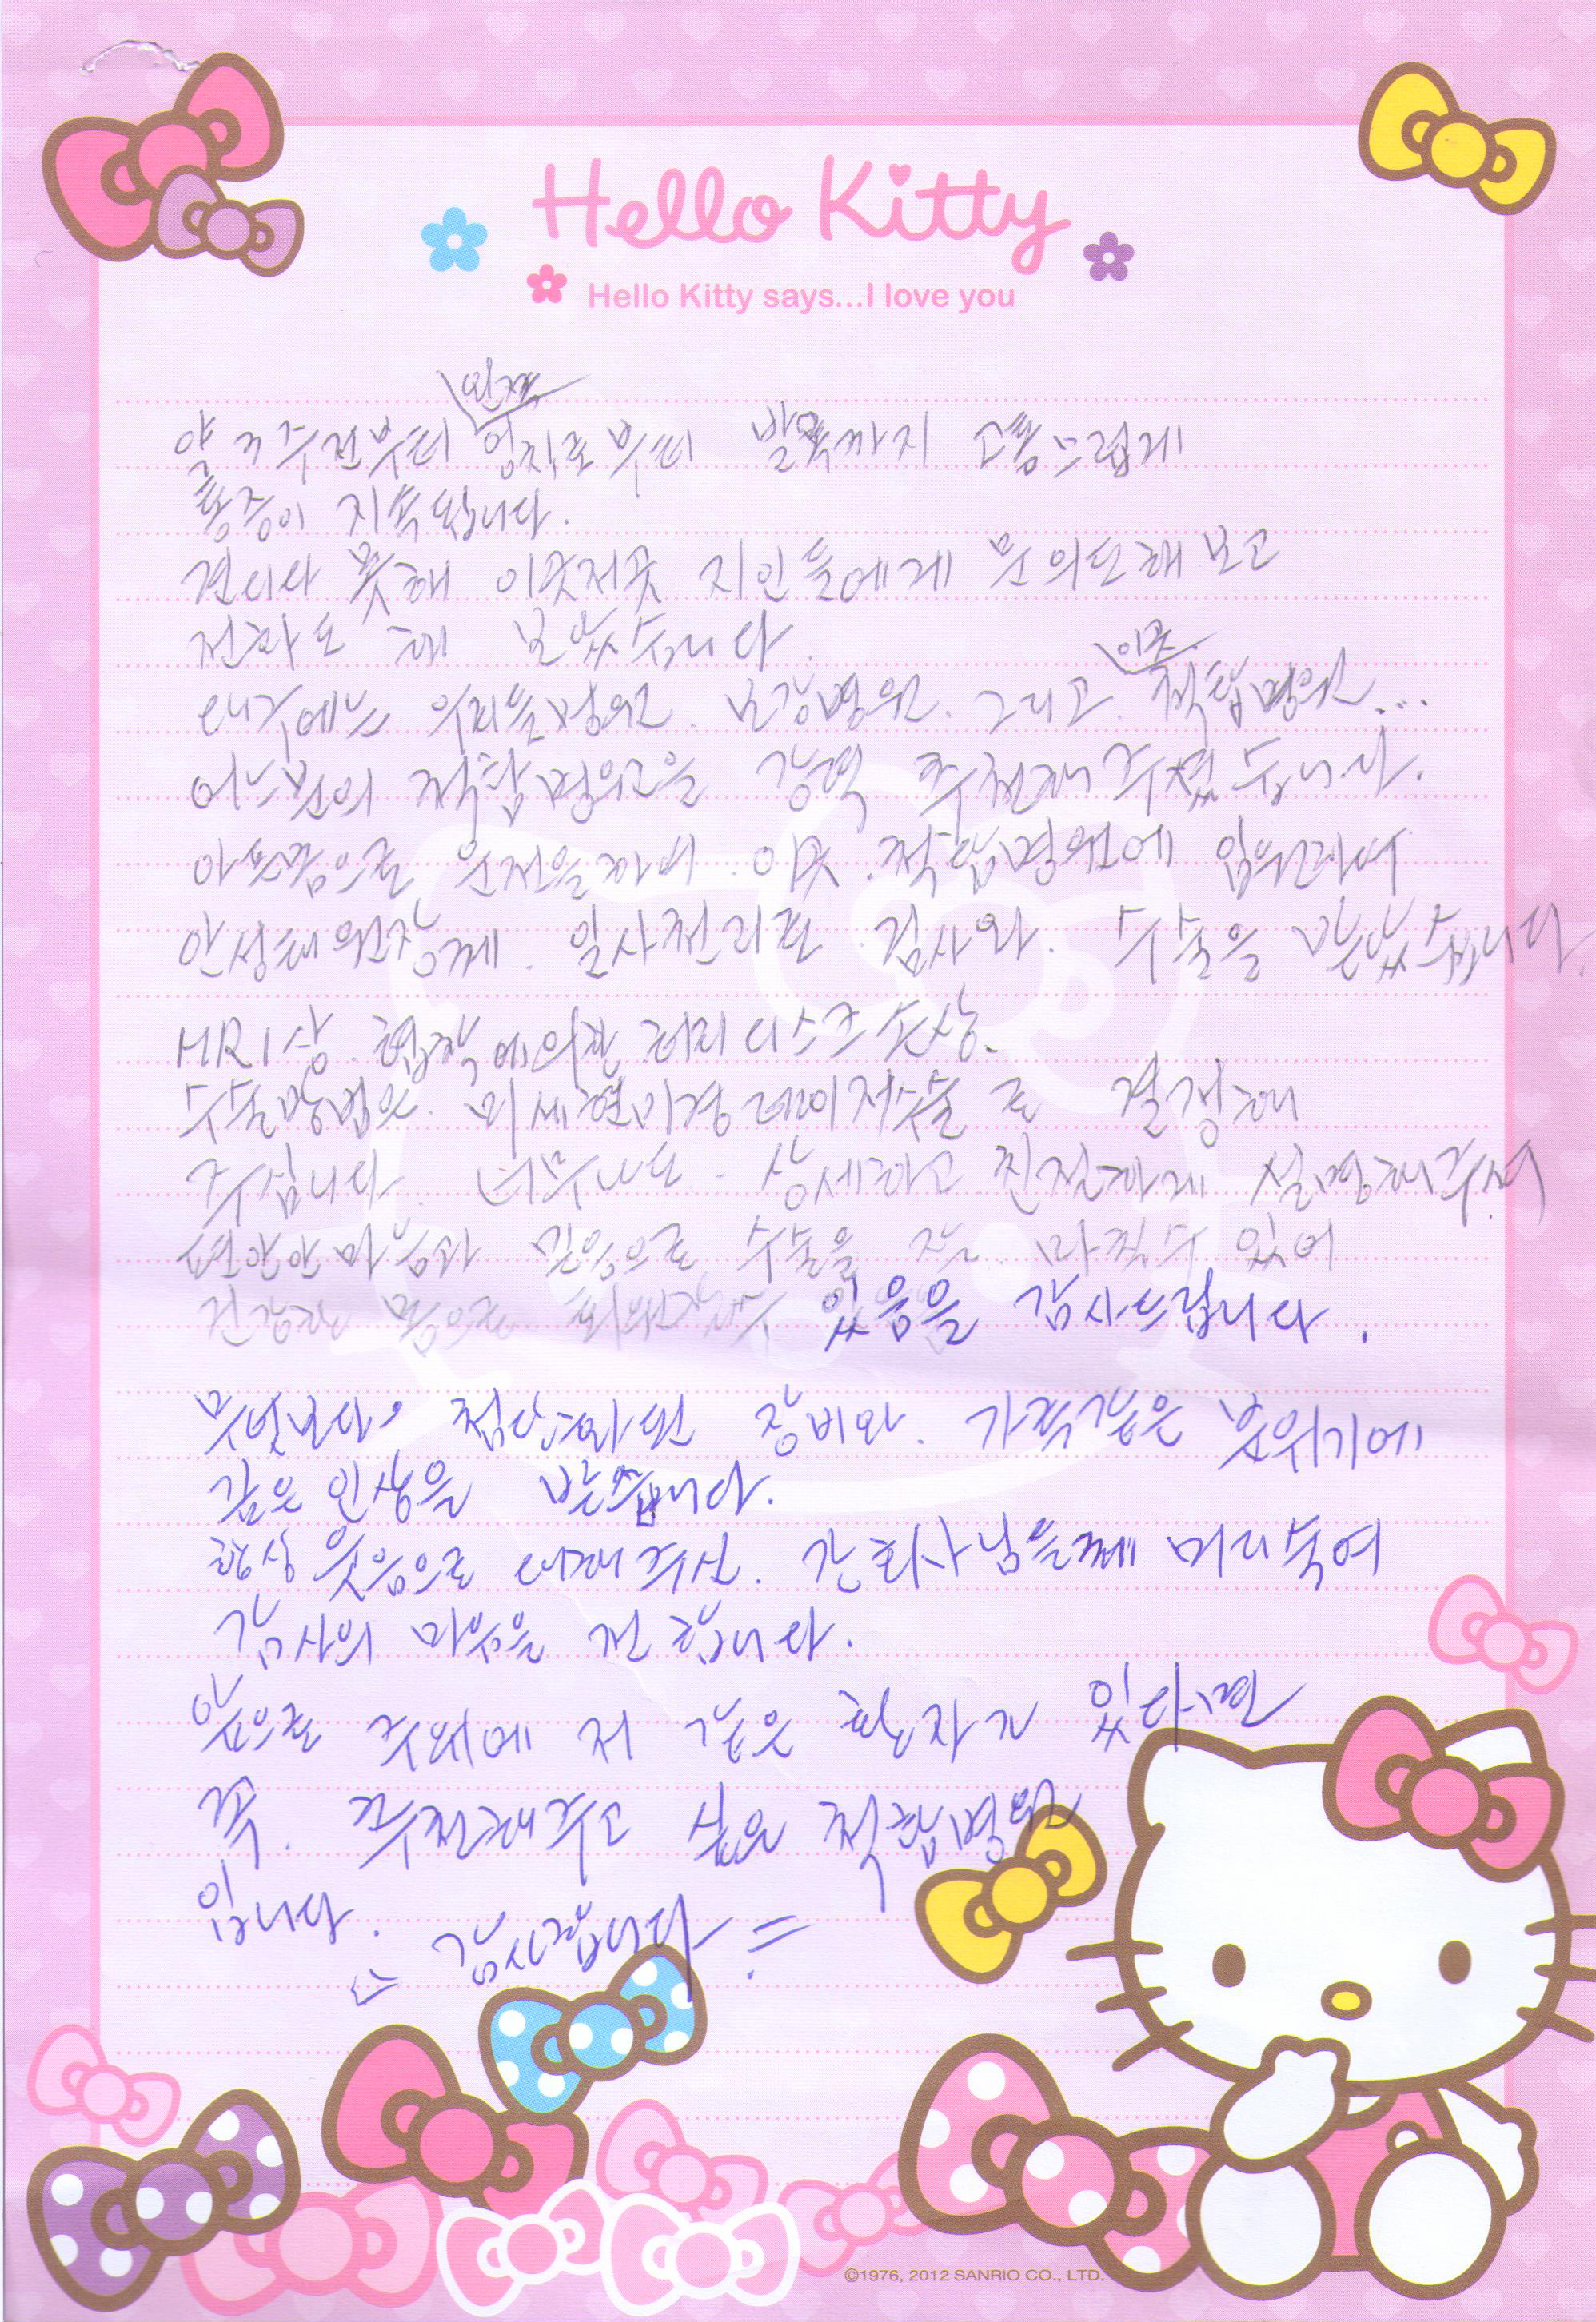 Hello Kitty
Hello Kitty says...I love you
왼쪽
약 2주전부터 엉치로부터 발목까지 고통스럽게
통증이 지속됩니다.
견디다 못해 이곳저곳 지인들에게 문의도해보고
전화도 해 보았습니다.
이곳.
대구에는 우리들병원. 보강병원. 그리고. 척탑병원...
어느분의 척탑병원을 강력 추천해주셨습니다.
아픔으로 운전을하며. 이곳. 척탑병원에 입원하여
안성태원장께. 일사천리로. 검사와. 수술을 받았습니다.
MRI상. 협착에의한 허리디스크손상.
수술방법은. 미세현미경 레이저수술로 결정해
주십니다. 너무나도. 상세하고 친절하게 설명해주며
편안한마음과 믿음으로 수술을 잘. 마칠수 있어
건강한 몸으로 회복할수 있음을 감사드립니다.
무엇보다. 첨단화된 장비와. 가족같은 분위기에
깊은인상을 받습니다.
항상 웃음으로 대해주신. 간호사님들께 머리숙여
감사의 마음을 전합니다.
앞으로 주위에 저 같은 환자가 있다면
꼭. 추천해주고 싶은 척탑병원
입니다.
= 감사합니다. =
©1976, 2012 SANRIO CO., LTD.